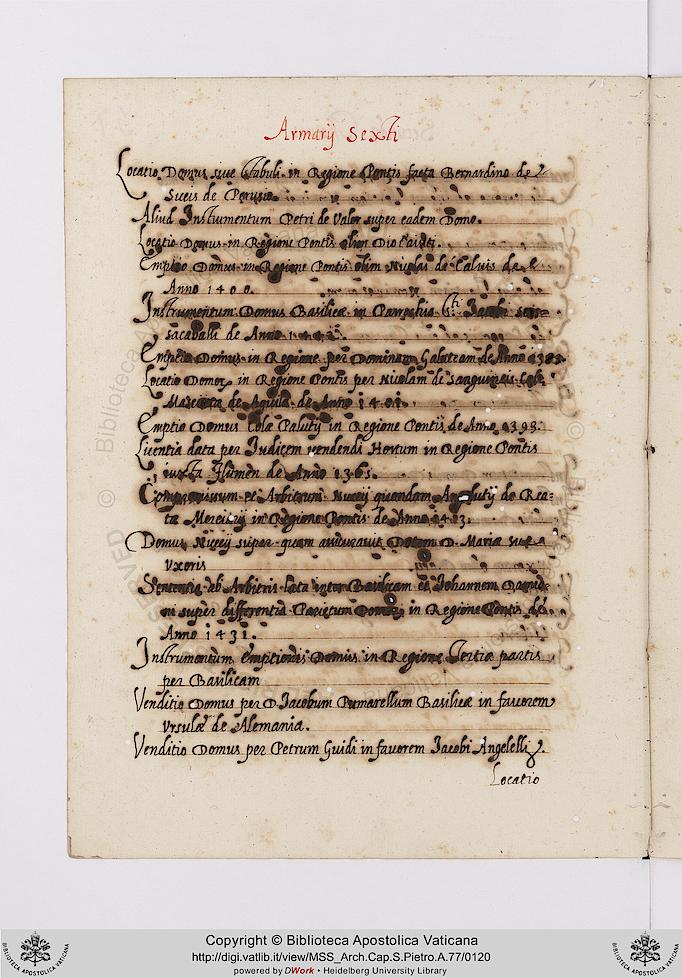 Armarij Sexti
Locatio Domus sive Stabuli in Regione Pontis facta Bernardino de
Sueis de Perusio
Aliud Instrumentum Petri de Valor super eadem Domo.
Locatio Domus in Regione Pontis olim
Emptio Domus in Regione Pontis olim Nicolai de Calvis de
Anno 1400.
Instrumentum Domus Basilicæ in Parrochia Sti. Jacobi
de Anno
Emptio Domus in Regione per Dominam Galateam de Anno 1383
Locatio Domor in Regione Pontis per Nicolam de Sanguineis
de Aquila de Anno 1401.
Emptio Domus Colæ Paluty in Regione Pontis de Anno 1393.
Licentia data per Iudicem vendendi Hortum in Regione Pontis
iuxta Flumen de Anno 1365.
Compromissum et Arbitrium Nucij quondam de Rea=
te Merciarij in Regione Pontis de Anno 1413.
Domus Nucij super quam assicuravit Dotem D. Mariæ suæ
Vxoris
Sententia ab Arbitris lata inter Basilicam et Johannem
super differentia Parietum Domor in Regione Pontis de
Anno 1431.
Instrumentum Emptionis Domus in Regione Tertiæ partis
per Basilicam
Venditio Domus per D. Jacobum Pumarellum Basilicæ in favorem
Vrsulæ de Alemania.
Venditio Domus per Petrum Guidi in favorem Jacobi Angelelli.
Locatio
Copyright © Biblioteca Apostolica Vaticana
http://digi.vatlib.it/view/MSS_Arch.Cap.S.Pietro.A.77/0120
powered by DWork • Heidelberg University Library